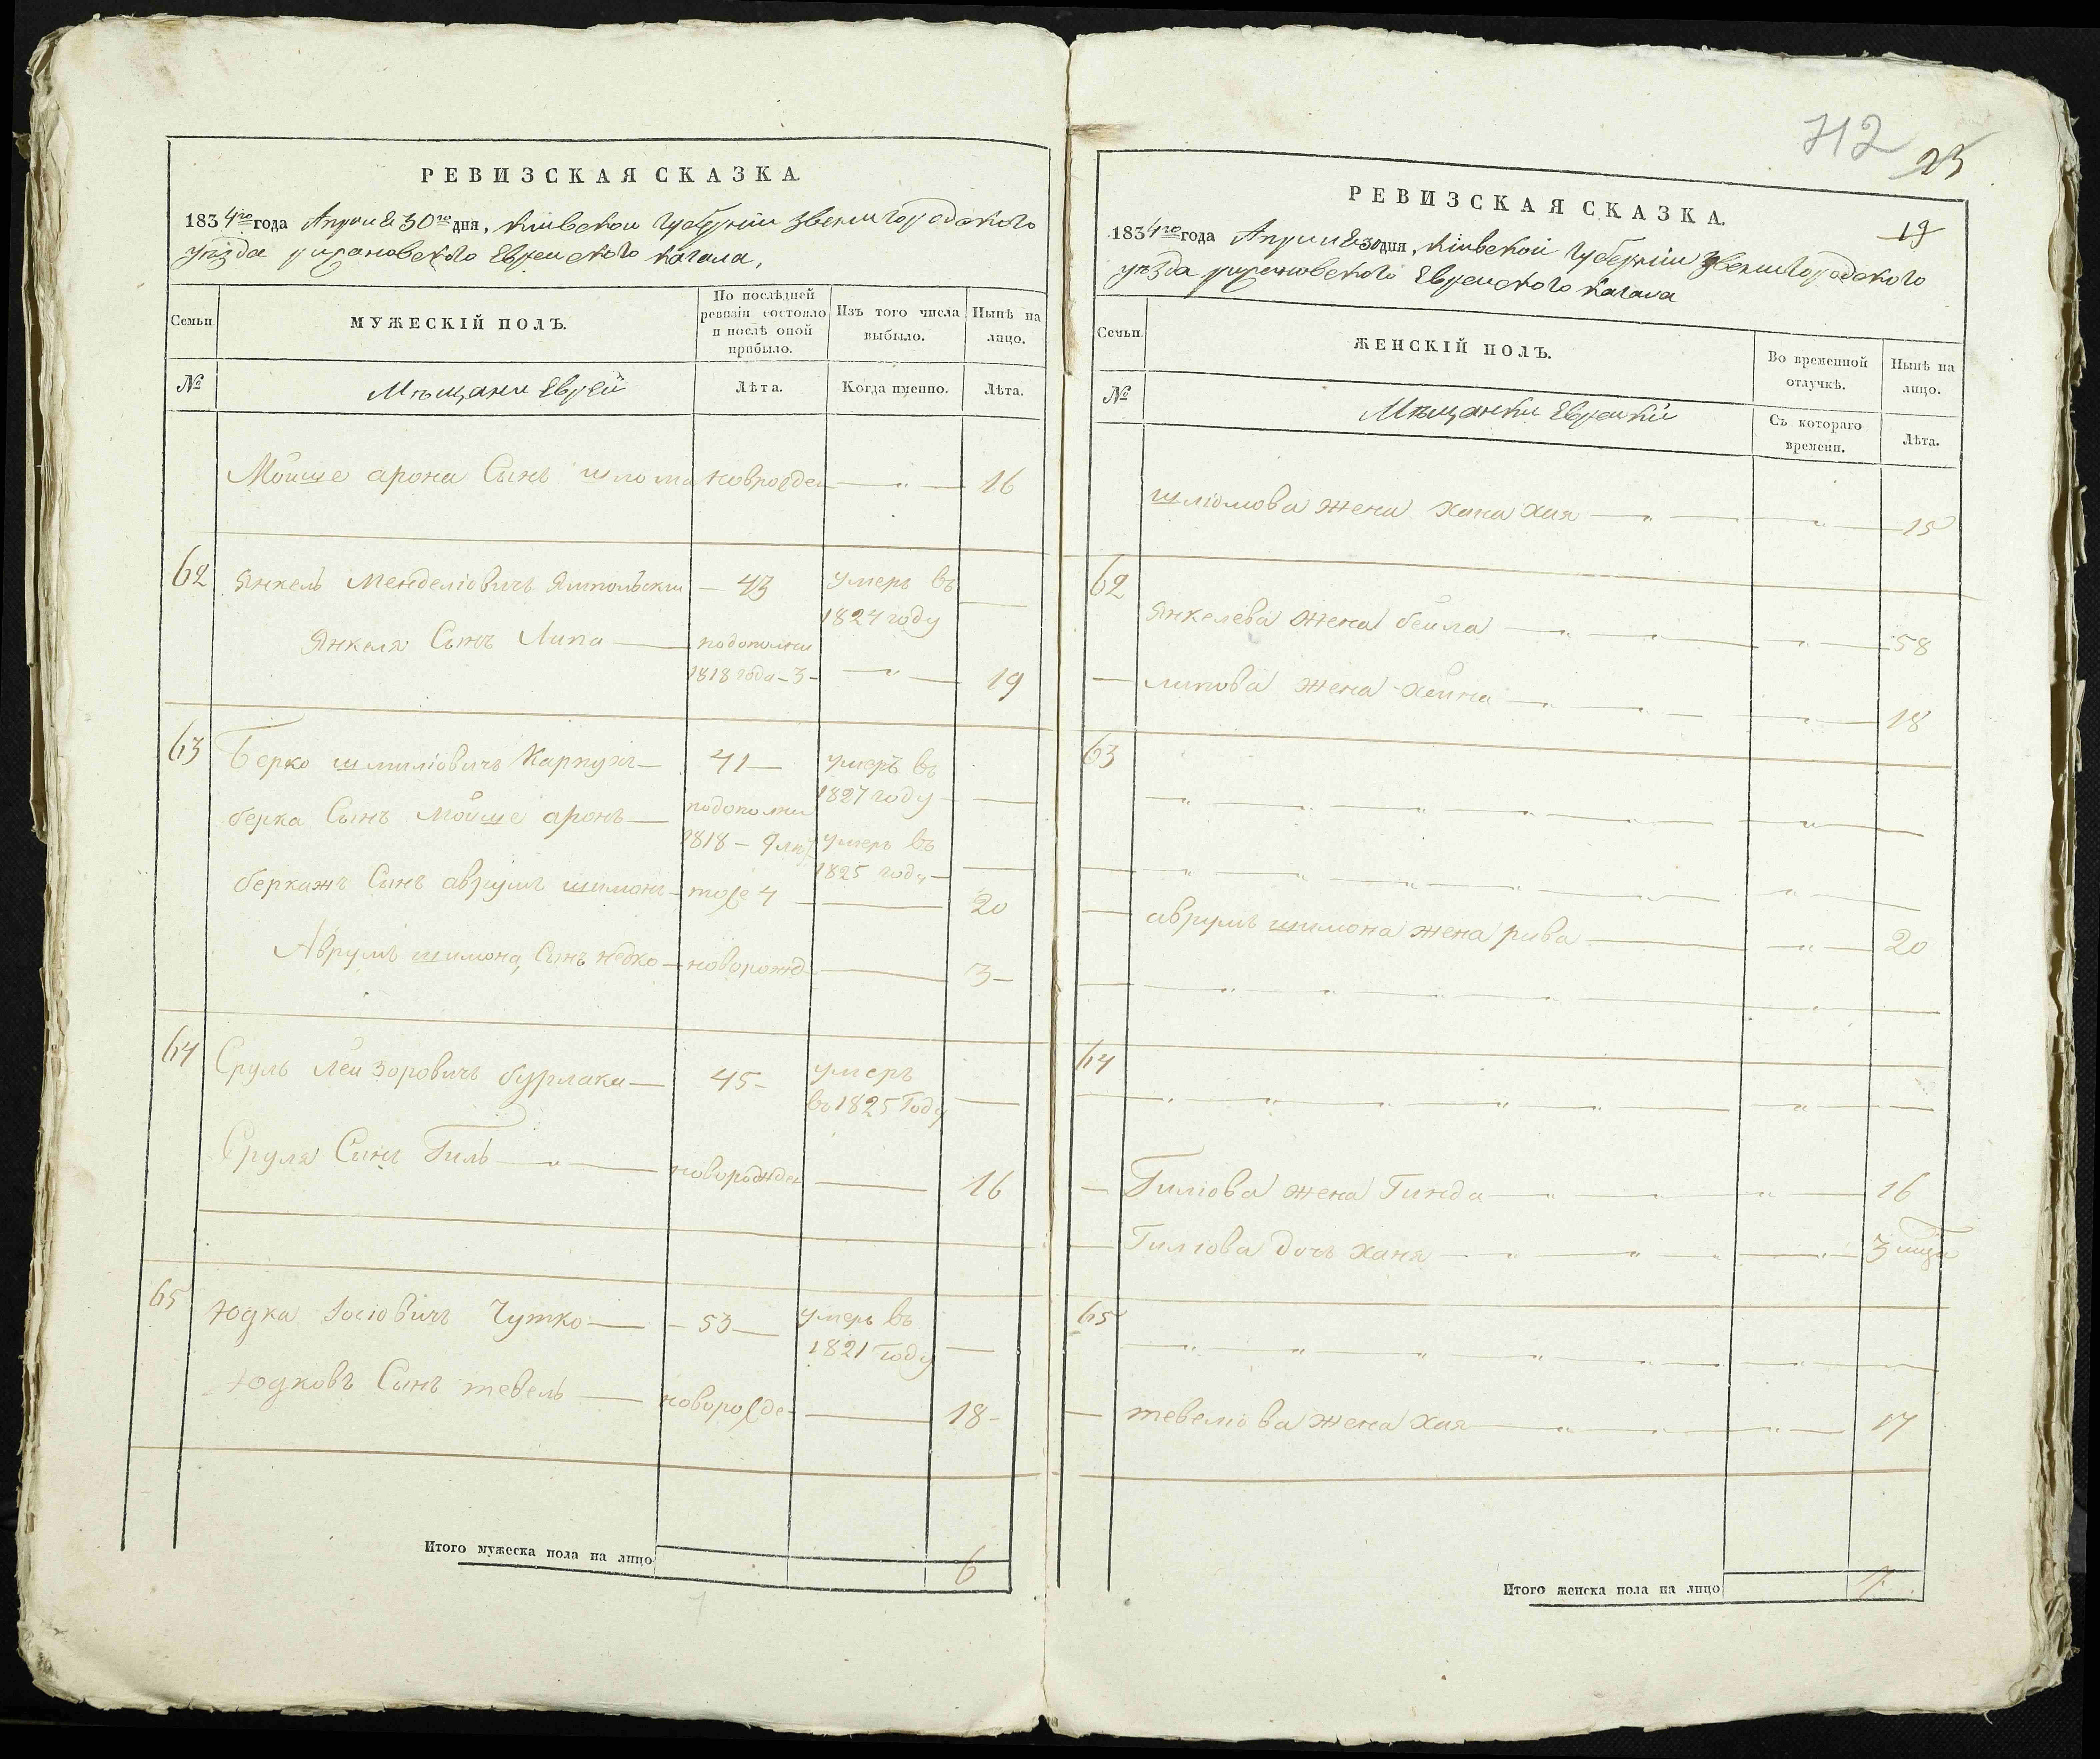 РЕВИЗСКАЯ СКАЗКА
1834го года Апреля 30го дня, Кіивской Губерніи Звенигородского
уѣзда рижановского Еврейского Кагала,
Семьи
МУЖЕСКІЙ ПОЛЪ.
По послѣдней ревизіи состояло и послѣ оной прибыло.
Изъ того числа выбыло.
Нынѣ на лицо.
№
Мѣщани Еврей
Лѣта.
Когда именно.
Лѣта.
Мойше арона Сынъ шлома новрожден — " — 16
62 Янкель Менделіовичъ Ямпольски — 43 умеръ въ
1824 году —
Янкеля Сынъ Липа — подополни
1818 года - 3 - — " — 19
63 Берко шмиліовичъ Карпухъ — 41 — умеръ въ
1827 году —
берка Сынъ мойше аронъ — подополни
1818 — 9 лѣт умеръ въ
1825 году —
беркажъ Сынъ аврумъ шимонъ — може 4 — 20
Аврумъ шимона, Сынъ недко — новорожд — 3 —
64 Сруль лейзоровичъ бурлака — 45 - умеръ
въ 1825 Году —
Сруля Синъ Гиль — " — новорожден — 16
65 Юдка Іосіовичъ Чутко — — 53 — умеръ въ
1821 году —
Юдковъ Сынъ тевель — новорожде — 18 -
Итого мужеска пола на лицо 6
712
23
РЕВИЗСКАЯ СКАЗКА.
19
1834го года Апреля 30 дня, Кіивской Губерніи Звенигородского
уѣзда рижановского Еврейского Кагала
Семьи
ЖЕНСКІЙ ПОЛЪ.
Во временной отлучкѣ.
Нынѣ на лицо.
№
Мѣщанки Еврейки
Съ котораго времени.
Лѣта.
шліомова жена хана хая — " — " — 15
62
Янкелева жена бейла — " — " — 58
— липова жена хейна — " — " — 18
63
— аврумъ шимона жена рива — " — 20
64
— Гиліова жена Гинда — " — " — " — 16
— Гиліова дочь ханя — " — " — " — 3 мѣца
65
— тевеліова жена хая — " — " — " — 17
Итого женска пола на лицо 7